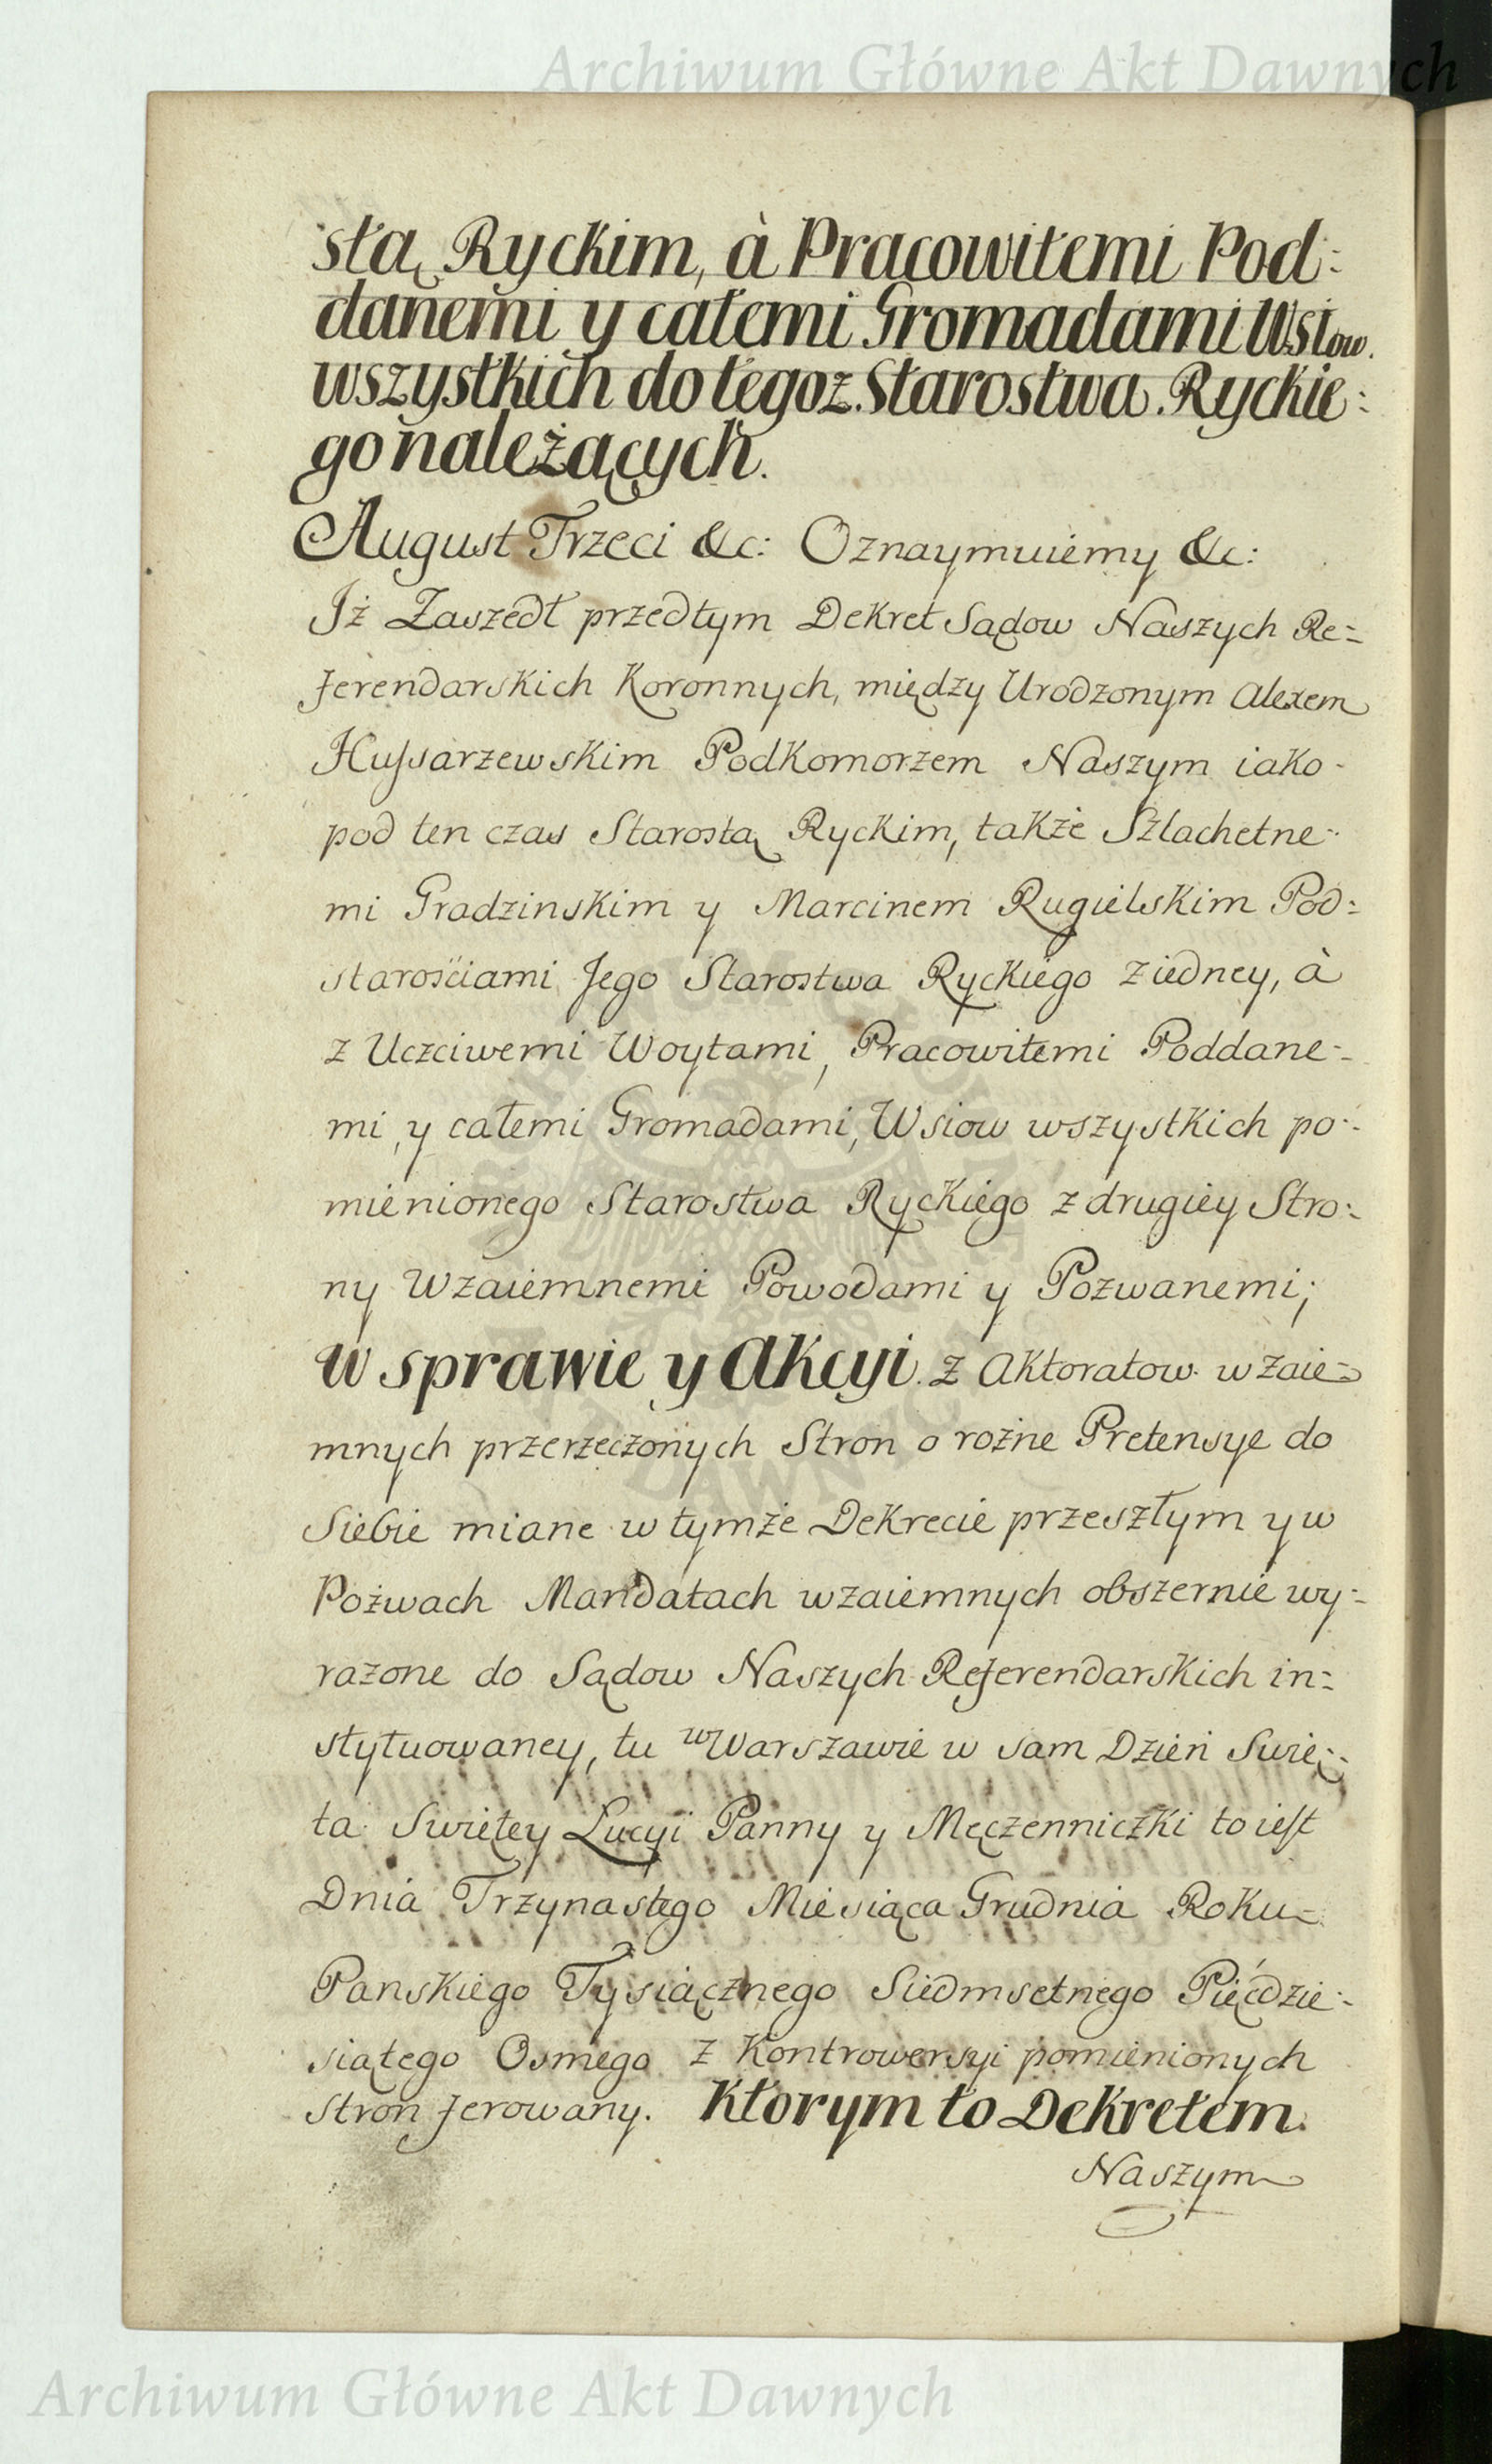 Archiwum Główne Akt Dawnych
stą Ryckim, à Pracowitemi Pod:
danemi y całemi Gromadami Wsiow.
wszystkich do tegoż. Starostwa. Ryckie:
go należących.
August Trzeci &c: Oznaymuiemy &c:
Jż Zaszedł przedtym Dekret Sądow Naszych Re=
ferendarskich Koronnych, między Urodzonym Alexem
Hussarzewskim Podkomorzem Naszym iako-
pod ten czas Starostą Ryckim, także Szlachetne-
mi Gradzinskim y Marcinem Rugielskim Pod=
starościami Jego Starostwa Ryckiego z iedney, à
z Uczciwemi Woytami, Pracowitemi Poddane-
mi, y całemi Gromadami, Wsiow wszystkich po-
mienionego Starostwa Ryckiego z drugiey Stro:
ny Wzaiemnemi Powodami y Pozwanemi;
w sprawie y Akcyi. z Aktoratow. wzaie=
mnych przerzeczonych Stron o rożne Pretensye do
Siebie miane w tymże Dekrecie przeszłym y w
Pożwach Mandatach wzaiemnych obszernie wy-
rażone do Sądow Naszych Referendarskich in=
stytuowaney, tu w Warszawie w sam Dzień Swię-
ta Swiętey Lucyi Panny y Męczenniczki to iest
Dnia Trzynastego Miesiąca Grudnia Roku=
Panskiego Tysiącznego Siedmsetnego Pięćdzie-
siątego Osmego z Kontrowersyi pomienionych
Stron ferowany. Ktorym to Dekretem.
Naszym
Archiwum Główne Akt Dawnych